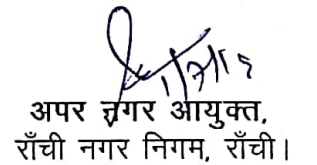 1/7/19
अपर नगर आयुक्त,
राँची नगर निगम, राँची।